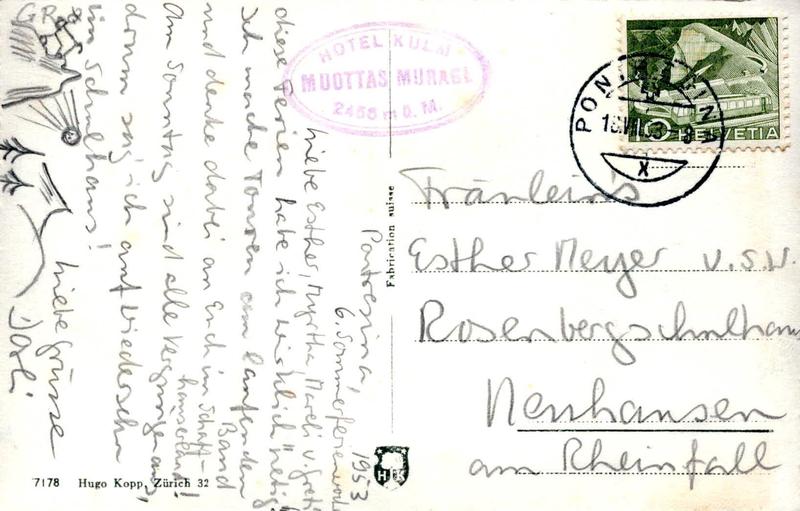 Pontresina,
6. Sommerferienwoche
1953
Liebe Esther, Myrtha, Mareli u. Greti,
diese Ferien habe ich wirklich nötig.
Ich mache Touren am laufenden
Band
und denke dabei an Euch im Schaff-
hauserland!
Am Sonntag sind alle Vergnügen aus,
drum sag ich auf Wiedersehn
im Schulhaus!
Liebe Grüsse
HOTEL KULM
MUOTTAS MURAGL
2456 m ü. M.
Fabrication suisse
PONTRESINA
HELVETIA
Fräulein's
Esther Meyer u.s.w.
Rosenbergschulhaus
Neuhausen
am Rheinfall
H K
7178 Hugo Kopp, Zürich 32